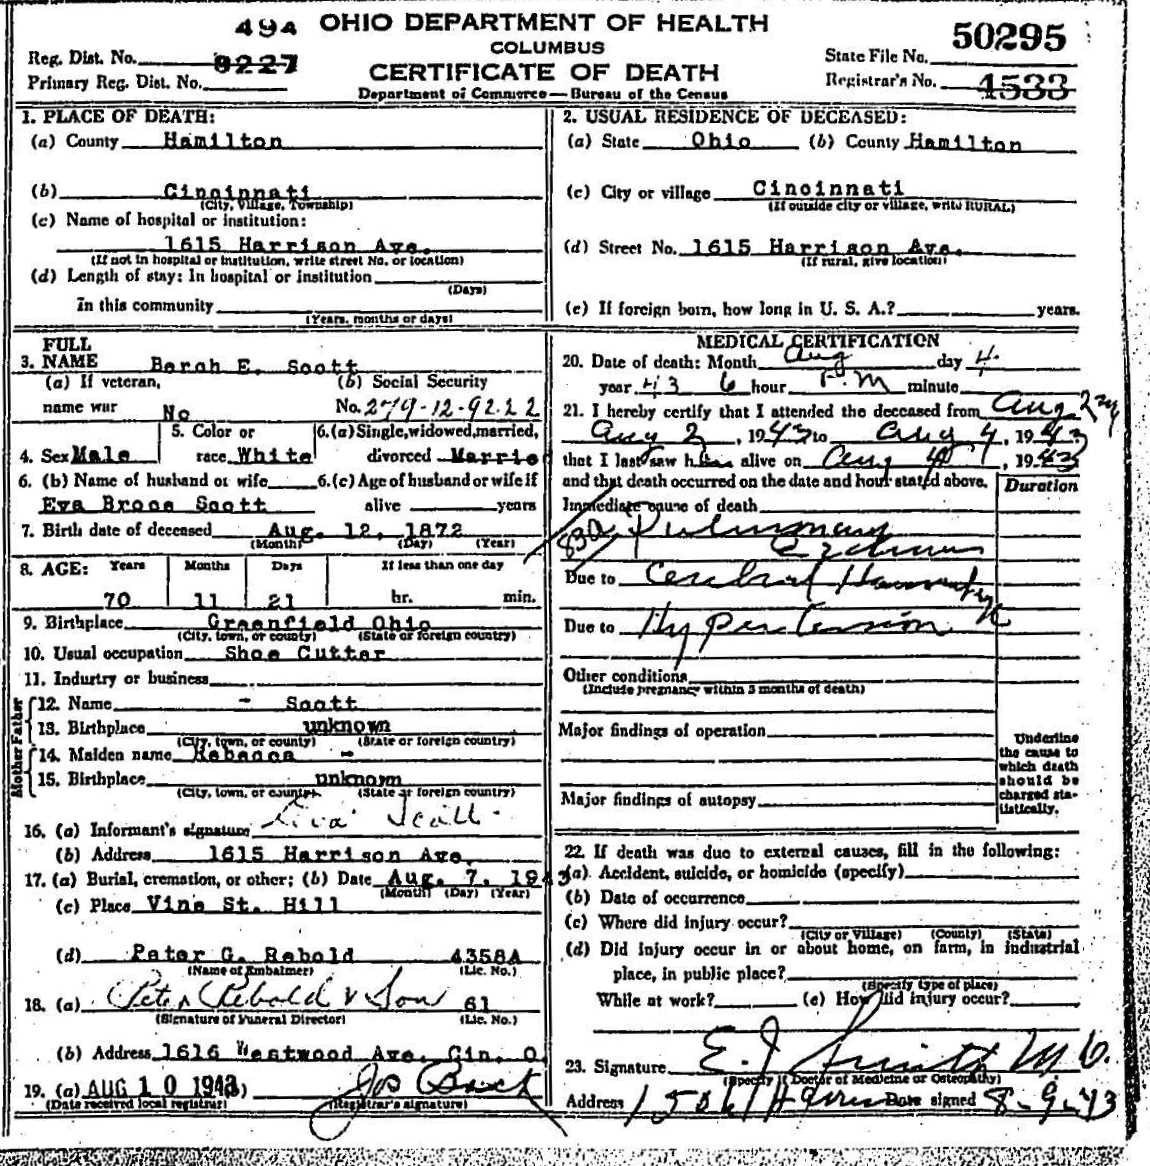 49A OHIO DEPARTMENT OF HEALTH 50295
COLUMBUS
Reg. Dist. No. 8227 State File No.
CERTIFICATE OF DEATH
Primary Reg. Dist. No. Registrar's No. 1533
Department of Commerce — Bureau of the Census
1. PLACE OF DEATH:
(a) County Hamilton
(b) Cincinnati
(City, Village, Township)
(c) Name of hospital or institution:
1615 Harrison Ave.
(If not in hospital or institution, write street No. or location)
(d) Length of stay: In hospital or institution
(Days)
In this community
(Years, months or days)
2. USUAL RESIDENCE OF DECEASED:
(a) State Ohio (b) County Hamilton
(c) City or village Cincinnati
(If outside city or village, write RURAL)
(d) Street No. 1615 Harrison Ave.
(If rural, give location)
(e) If foreign born, how long in U. S. A.? years.
FULL
3. NAME Berah E. Scott
(a) If veteran, (b) Social Security
name war No No. 279-12-9222
5. Color or 6. (a) Single, widowed, married,
4. Sex Male race White divorced Married
6. (b) Name of husband or wife 6. (c) Age of husband or wife if
Eva Brooe Scott alive years
7. Birth date of deceased Aug. 12, 1872
(Month) (Day) (Year)
8. AGE: Years Months Days If less than one day
70 11 21 hr. min.
9. Birthplace Greenfield Ohio
(City, town, or county) (State or foreign country)
10. Usual occupation Shoe Cutter
11. Industry or business
Father
12. Name - Scott
13. Birthplace unknown
(City, town, or county) (State or foreign country)
Mother
14. Maiden name Rebecca -
15. Birthplace unknown
(City, town, or county) (State or foreign country)
16. (a) Informant's signature Eva Scott
(b) Address 1615 Harrison Ave.
17. (a) Burial, cremation, or other; (b) Date Aug. 7, 1943
(Month) (Day) (Year)
(c) Place Vine St. Hill
(d) Peter G. Rebold 4358A
(Name of Embalmer) (Lic. No.)
18. (a) Peter Rebold & Son 61
(Signature of Funeral Director) (Lic. No.)
(b) Address 1616 Westwood Ave. Cin. O.
19. (a) AUG 10 1943 (b)
(Date received local registrar) (Registrar's signature)
MEDICAL CERTIFICATION
20. Date of death: Month Aug day 4
year 43 6 hour P.M minute
21. I hereby certify that I attended the deceased from Aug 2nd
Aug 2, 1943 to Aug 4, 1943
that I last saw him alive on Aug 4, 1943
and that death occurred on the date and hour stated above. Duration
Immediate cause of death
83a Pulmonary
Edema
Due to Cerebral Hemorrhage
Due to Hypertension
Other conditions
(Include pregnancy within 3 months of death)
Major findings of operation
Major findings of autopsy
Underline
the cause to
which death
should be
charged sta-
tistically.
22. If death was due to external causes, fill in the following:
(a). Accident, suicide, or homicide (specify)
(b) Date of occurrence
(c) Where did injury occur?
(City or Village) (County) (State)
(d) Did injury occur in or about home, on farm, in industrial
place, in public place?
(Specify type of place)
While at work? (e) How did injury occur?
23. Signature E. J. Smith M.D.
(Specify if Doctor of Medicine or Osteopathy)
Address Date signed 8-9-43